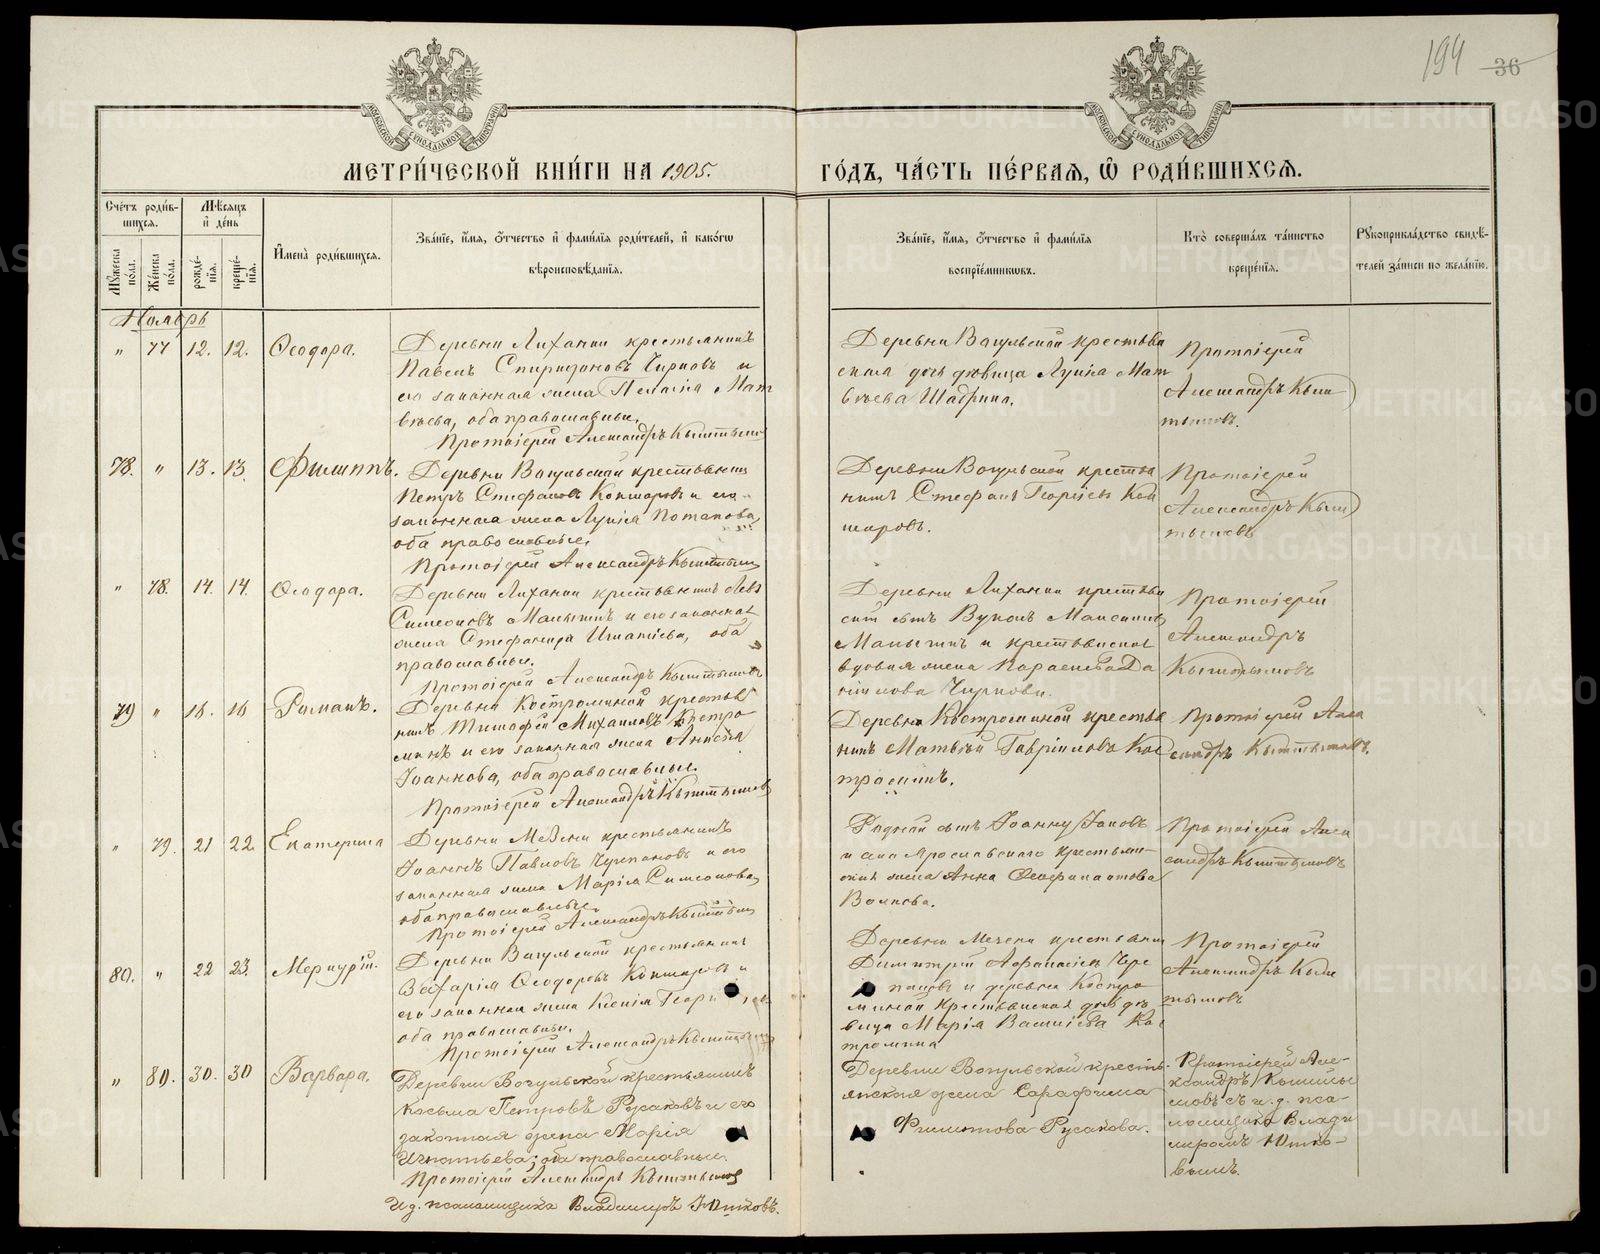 194 36
МОСКОВСКОЙ СѴНОДАЛЬНОЙ ТИПОГРАФІИ
МОСКОВСКОЙ СѴНОДАЛЬНОЙ ТИПОГРАФІИ
МЕТРИ́ЧЕСКОЙ КНИ́ГИ НА 1905. ГО́ДЪ, ЧА́СТЬ ПЕ́РВАѦ, Ѡ҆ РОДИ́ВШИХСѦ.
Сче́тъ роди́в-
шихсѧ.
Мꙋ́жеска по́ла.
Же́нска по́ла.
Мѣ́сѧцъ и҆ де́нь
рожде́-
нїѧ.
креще́-
нїѧ.
И҆мена̀ роди́вшихсѧ.
Зва́нїе, и҆́мѧ, ѻ҆́тчество и҆ фами́лїѧ роди́телей, и҆ како́гѡ
вѣроисповѣ́данїѧ.
Зва́нїе, и҆́мѧ, ѻ҆́тчество и҆ фами́лїѧ
воспрїе́мникѡвъ.
Кто̀ соверша́лъ та́инство
креще́нїѧ.
Рꙋкоприкла́дство свидѣ́-
телей за́писи по жела́нїю.
Ноябрь
" 77 12. 12. Ѳеодора.
Деревни Лиханки крестьянинъ
Павелъ Спиридоновъ Чирковъ и
его законная жена Пелагія Мат
вѣева, оба православные.
Протоіерей Александръ Кыштымов
Деревни Вогульской крестьян
ская дочь дѣвица Лукія Мат
вѣева Шадрина.
Протоіерей
Александръ Кыш
тымовъ.
78. " 13. 13. Филиппъ.
Деревни Вогульской крестьянин
Петръ Стефановъ Кокшаровъ и его
законная жена Лукія Потапова,
оба православные.
Протоіерей Александръ Кыштымов
Деревни Вогульской крестья
нинъ Стефанъ Георгіев Кок
шаровъ.
Протоіерей
Александръ Кыш
тымовъ
" 78. 14. 14. Ѳеодора.
Деревни Лиханки крестьянинъ Левъ
Симеоновъ Манькинъ и его законная
жена Стефанида Игнатіева, оба
православные.
Протоіерей Александръ Кыштымовъ
Деревни Лиханки крестьян
скій сынъ Вуколъ
и крестьянская
вдовая жена Параскева Да
ніилова Чиркова.
Протоіерей
Александръ
Кыштымовъ
79 " 16. 16 Романъ.
Деревни Костроминой крестья
нинъ Тимофей Михаиловъ Костро
минъ и его законная жена Анисія
Іоаннова, оба православные.
Протоіерей Александръ Кыштымов
Деревни Костроминой крестья
нинъ Матвѣй Гавріиловъ Кос
троминъ.
Протоіерей Алек
сандръ Кыштымовъ.
" 79. 21 22. Екатерина
Деревни крестьянинъ
Іоаннъ Павловъ Черепановъ и его
законная жена Марія Симеонова,
оба православные.
Протоіерей Александръ Кыштым
Родной сынъ Іоанну Іаковъ
и села Ярославскаго крестьян-
ская жена Анна
Волкова.
Протоіерей Алек
сандръ Кыштымовъ
80. " 22 23. Меркурій.
Деревни Вогульской крестьянин
Захарія Ѳеодоровъ Кокшаровъ и
его законная жена Ксенія Георг
оба православные.
Протоіерей Александръ Кыштымовъ
Деревни крестьянин
Димитрій Аѳанасіев Чере
пановъ и деревни Костро
миной крестьянская дочь дѣ
вица Марія Василіева Кос
тромина
Протоіерей
Александръ Кыш
тымовъ
" 80. 30. 30 Варвара.
Деревни Вогульской крестьянинъ
Косьма Петровъ Русаковъ и его
законная жена Марія
Игнатьева; оба православные.
Протоіерей Александръ Кыштымов
И. д. псаломщика Владимиръ Югковъ.
Деревни Вогульской кресть-
янская жена Серафима
Филиппова Русакова.
Протоіерей Але-
ксандръ Кышты
мовъ съ и. д. пса-
ломщика Влади
миромъ